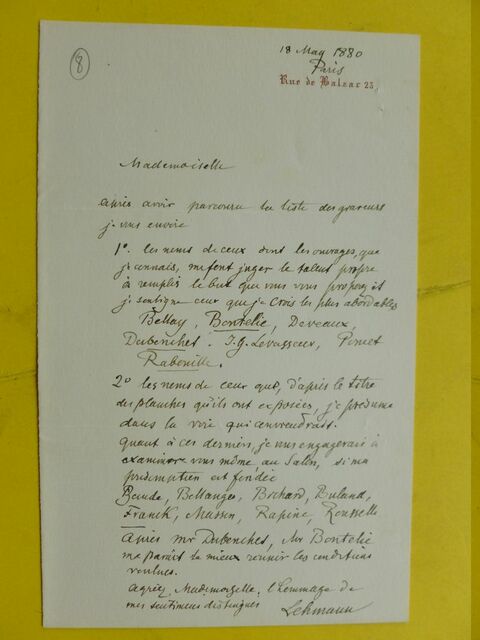 8
18 May 1880
Paris
Rue de Balzac 23,
Mademoiselle
Après avoir parcouru la liste des graveurs
je vous envoie
1º. les noms de ceux dont les ouvrages, que
je connais, me font juger le talent propre
à remplir le but que vous vous proposez et
je souligne ceux que je crois les plus abordables
Bellay, Bontelié, Deveaux,
Dubouchet. J. G. Levasseur, Ponet
Rabouille.
2º les noms de ceux que, d'après le titre
des planches qu'ils ont exposées, je présume
dans la voie qui conviendrait.
quant à ces derniers, je vous engagerais à
examiner vous même, au Salon, si ma
présomption est fondée
Baude, Bellanger, Bochard, Buland,
Franck, Masson, Rapine, Rousselle
Après mr Dubouchet, Mr Bontelié
me paraît le mieux réunir les conditions
voulues.
Agréez, Mademoiselle, l'hommage de
mes sentimens distingués
Lehmann